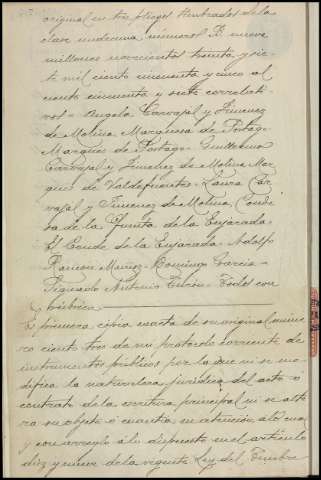 original en tres pliegos timbrados de la
clase undecima números B. nueve
millones novecientos treinta y sie-
te mil ciento cincuenta y cinco al
ciento cincuenta y siete correlati-
vos - Angela Carvajal y Jimenez
de Molina, Marquesa de Portago
Marqués de Portago - Guillermo
Carvajal y Jimenez de Molina Mar-
qués de Valdefuentes - Laura Car-
vajal y Jimenez de Molina, Conde-
sa de la Quinta de la Enjarada
El Conde de la Enjarada - Adolfo
Rancon Muñoz - Domingo Garcia -
Signado Antonio Turón - Todos con
rúbrica
Es primera copia exacta de su original núme-
ro ciento tres de mi protocolo corriente de
instrumentos públicos por la que ni se mo-
difica la naturaleza jurídica del acto ó
contrato de la escritura principal ni se alte-
ra su objeto ó cuantía en atención á lo cual
y con arreglo á lo dispuesto en el artículo
diez y nueve de la vigente Ley del Timbre